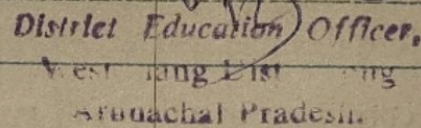 District Education Officer,
West
Arunachal Pradesh.